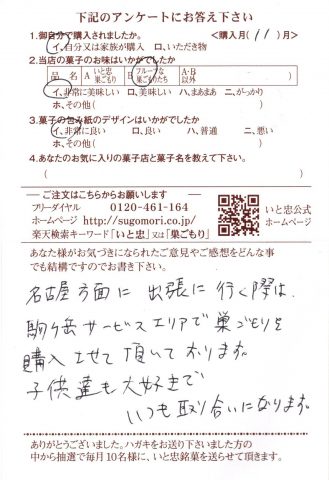 下記のアンケートにお答え下さい
1.御自分で購入されましたか。 <購入月(11)月>
イ、自分又は家族が購入 ロ、いただき物
2.当店の菓子のお味はいかがでしたか
品 名 A いと忠 巣ごもり B フルーツな 巣ごもりたち A・B 以外
イ、非常に美味しい ロ、美味しい ハ、まあまあ ニ、がっかり
ホ、その他( )
3.菓子の包み紙のデザインはいかがでしたか
イ、非常に良い ロ、良い ハ、普通 ニ、悪い
ホ、その他( )
4.あなたのお気に入りの菓子店と菓子名を教えて下さい。
( )
ご注文はこちらからお願いします
フリーダイヤル 0120-461-164
ホームページ http://sugomori.co.jp/
楽天検索キーワード「いと忠」又は「巣ごもり」
いと忠公式
ホームページ
あなた様がお気づきになられたご意見やご感想をどんな事
でも結構ですのでお書き下さい。
名古屋方面に 出張に 行く際は、
駒ヶ岳サービスエリアで巣ごもりを
購入させて頂いております。
子供達も大好きで
いつも取り合いになります。
ありがとうございました。ハガキをお送り下さいました方の
中から抽選で毎月10名様に、いと忠銘菓を送らせて頂きます。